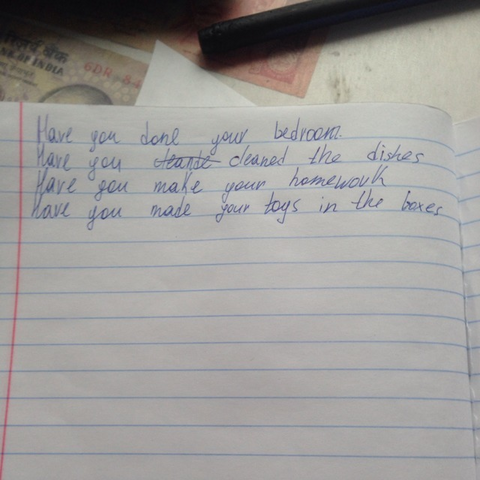 BANK OF INDIA
6DR
Have you done your bedroom.
Have you cleaned the dishes
Have you make your homework
Have you made your toys in the boxes